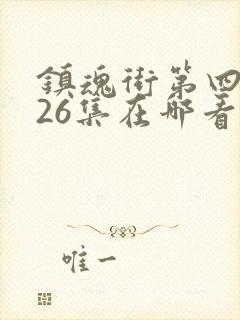 鎮魂街第四
26集在哪看
唯一